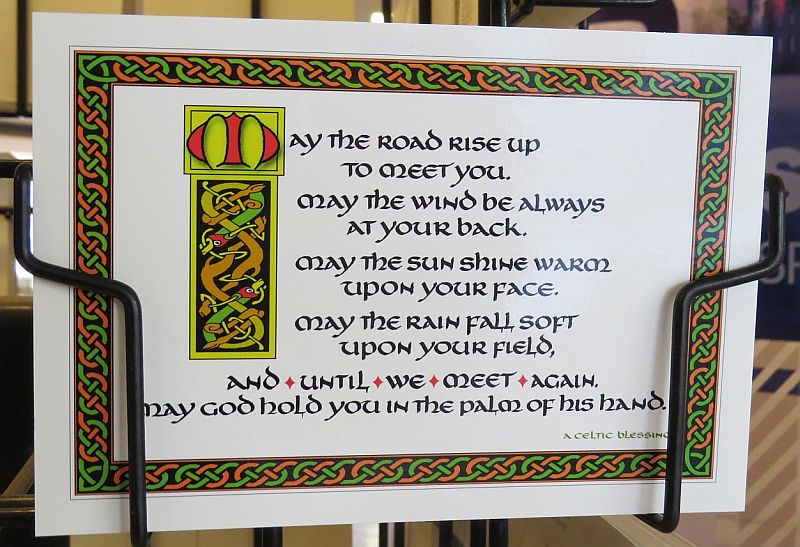 May the road rise up
to meet you.
May the wind be always
at your back.
May the sun shine warm
upon your face.
May the rain fall soft
upon your field,
and ♦ until ♦ we ♦ meet ♦ again.
May God hold you in the palm of his hand.
A Celtic Blessing